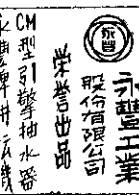 永豐
永豐工業
股份有限公司
榮譽出品
CM型引擎抽水器